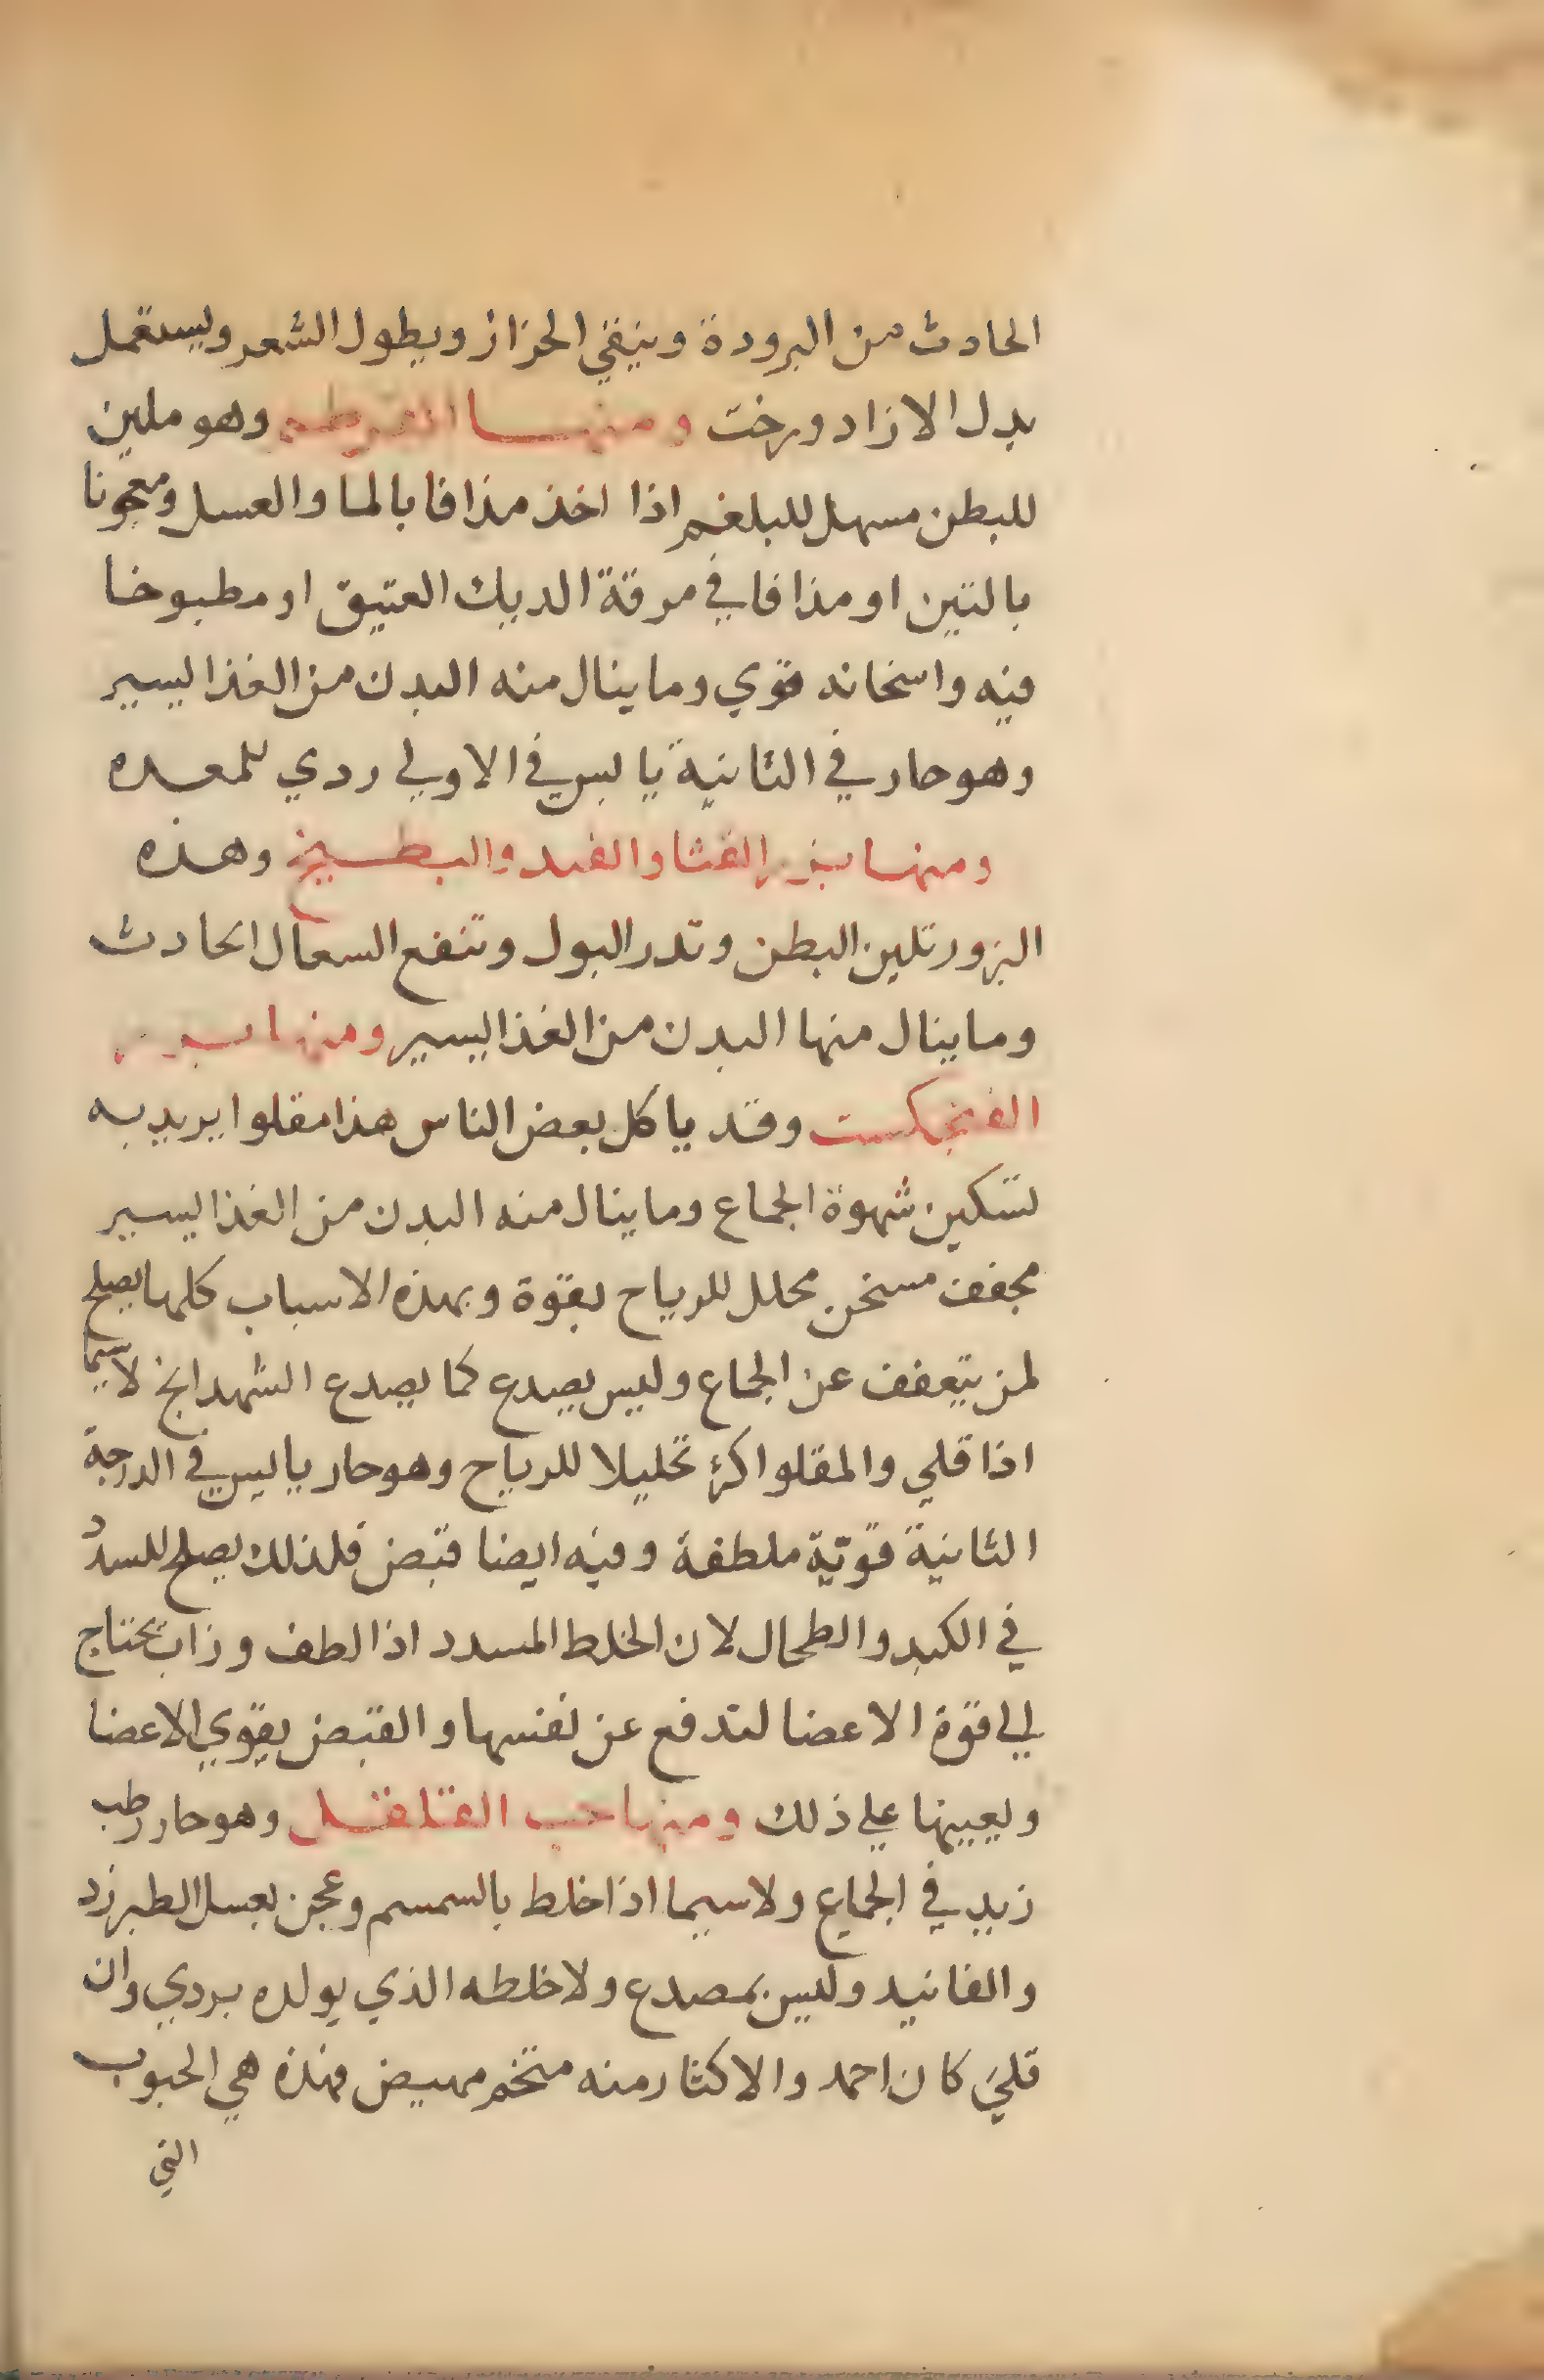 الحادث من البرودة وينقي الحزاز ويطول الشعر ويستعمل
بدل الازاد ورخت ومنها القرطم وهو ملين
للبطن مسهل للبلغم اذا اخذ مذافا بالما والعسل ومعجونا
بالتين او مذافا في مرقة الديك العتيق او مطبوخا
فيه واسخانه قوي وما ينال منه البدن من الغذا ليسير
وهو حار في الثانية يابس في الاولي ردي للمعده
ومنها بزر القثا والقثد والبطيخ وهذه
البزور تلين البطن وتدر البول وتنفع السعال الحادث
وما ينال منها البدن من الغذا ليسير ومنها بزر
الفنجكست وقد ياكل بعض الناس هذا مقلوا يريد به
تسكين شهوة الجماع وما ينال منه البدن من الغذا ليسير
مجفف مسخن محلل للرياح بقوة وبهذه الاسباب كلها يصلح
لمن يتعفف عن الجماع وليس يصدع كما يصدع الشهدانج لاسيما
اذا قلي والمقلو اكثر تحليلا للرياح وهو حار يابس في الدرجة
الثانية قوية ملطفة وفيه ايضا قبض فلذلك يصلح للسدد
في الكبد والطحال لان الخلط المسدد اذا لطف وذاب تحتاج
الي قوة الاعضا لتدفع عن نفسها والقبض يقوي الاعضا
ويعينها علي ذلك ومنها حب القلقل وهو حار رطب
زيد في الجماع ولاسيما اذا خلط بالسمسم وعجن بعسل الطبرزد
والفانيد وليس بمصدع ولا خلطه الذي يولده بردي وان
قلي كان احمد والاكثار منه متخم مهيض فهذه هي الحبوب
التي